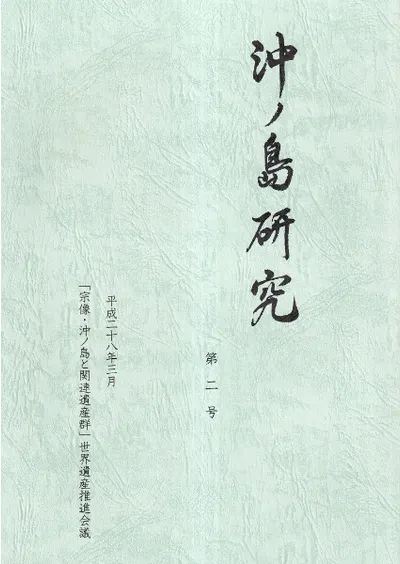 沖ノ島研究
第二号
平成二十八年三月
「宗像・沖ノ島と関連遺産群」世界遺産推進会議